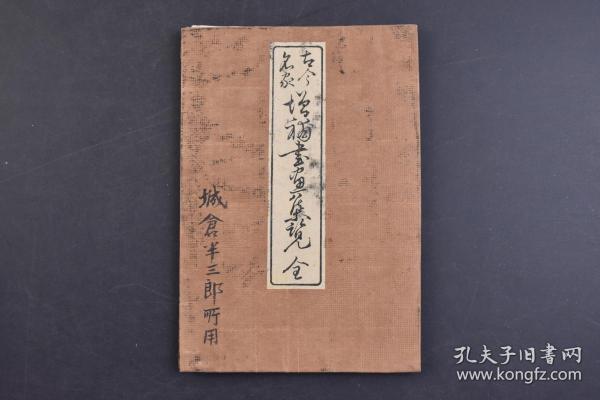 古今
名家
増補書画集覧 全
城倉半三郎所用
孔夫子旧书网
www.kongfz.com